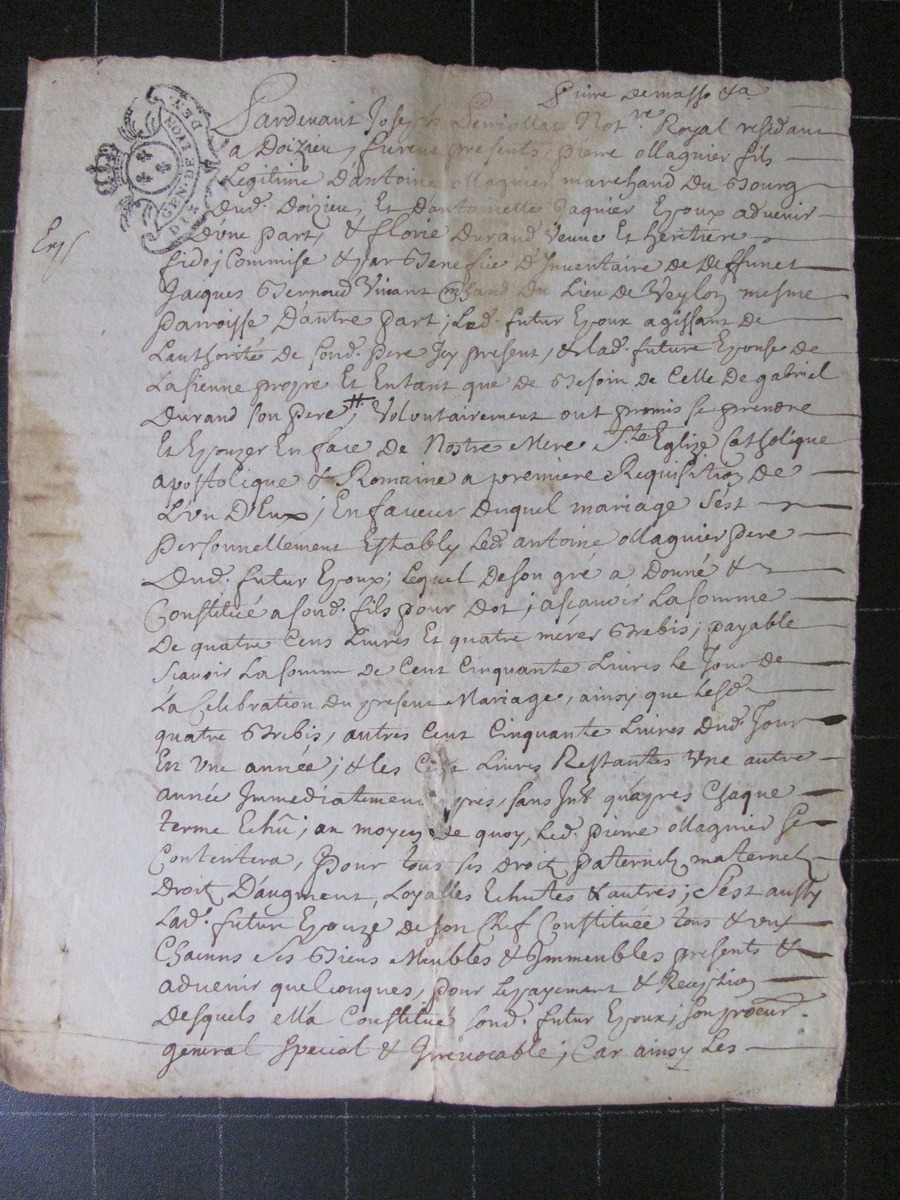 DEN.
GEN.DE LION
DIX
Pardevant Joseph Not.re Royal residant
a Doizieu, furent presents, pierre ollagnier fils
Legitime Dantoine ollagnier marchand Du Bourg
Dud. Doizieu, Et Dantoinette Jaquier Epoux advenir
Dune part, & florie Durand Veuve Et heritiere
fideiCommise & par Benefice D'Inventaire de deffunct
Jacques Bernoud Vivant mchand Du Lieu de Veylon mesme
parroisse Dautre part; Led. futur Epoux agissant de
Lauthorité de sond. pere Icy present, & lad. future Epouse de
Lasienne propre Et Entant que de Besoin de Celle De gabriel
Durand son pere, Volontairement ont promis se prendre
Et Epouzer En face De Nostre Mere S.te Eglize Catholique
apostolique & Romaine a premiere Requisition de
L'vn D'Eux; En faveur Duquel mariage s'est
personnellement Estably Led. antoine ollagnier pere
Dud. futur Epoux; Lequel Deson gré a Donné &
Constitué a sond. fils pour Dot; ascavoir Lasomme
De quatre Cens Livres Et quatre meres Brebis; payable
scavoir La somme de Cent Cinquante Livres Le Jour de
La Celebration Du present Mariage, ainsy que lesd.
quatre Brebis, autres Cent Cinquante Livres Dud. Jour
En Vne année; & les Cent Livres Restantes Vne autre
année Immediatement apres, sans Int. qu'apres Chaque
terme Echû; au moyen de quoy, Led. pierre ollagnier se
Contentera, pour tous ses Droit paternel, maternel,
Droit D'augment, Loyalles Echutes & autres; s'est aussy
Lad. future Epouze de son Chef Constituée tous & vns
Chacuns ses Biens Meubles & Immeubles presents &
advenir quelconques, pour Lepayement & Reception
Desquels ella Constitué sond. futur Epoux, son procur.
general special & Irrevocable; Car ainsy Les